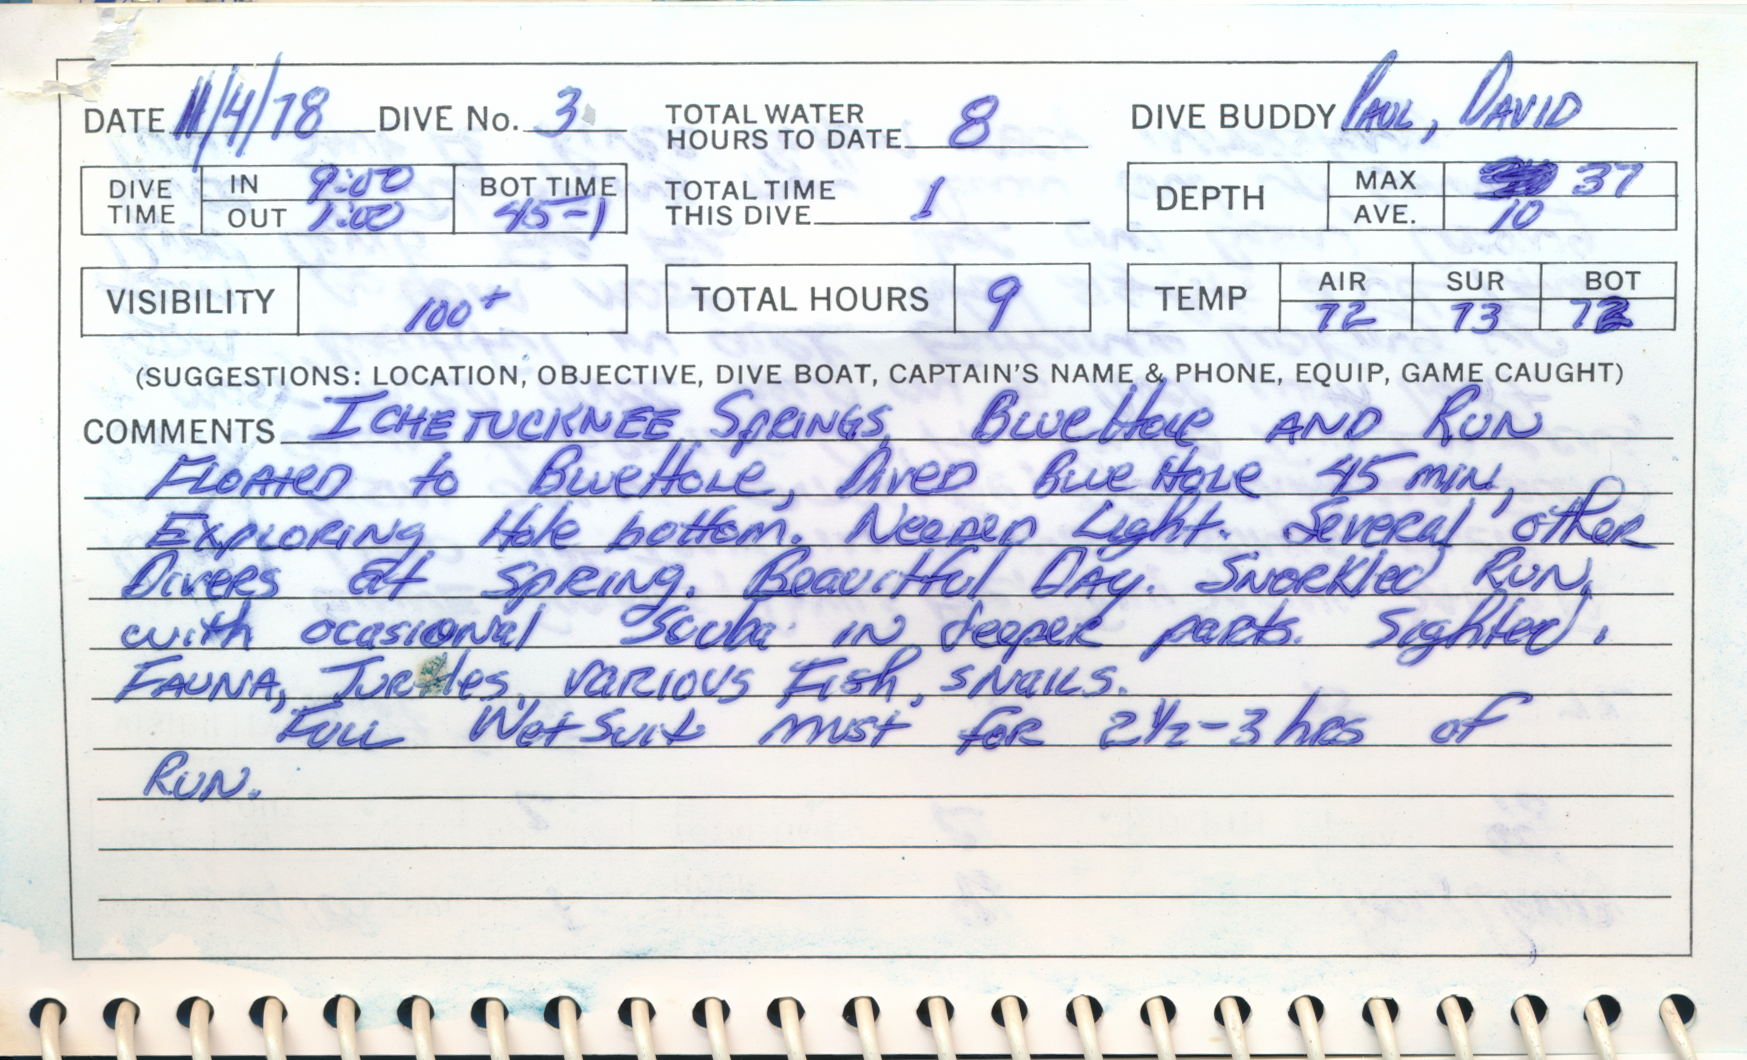 DATE 11/4/78 DIVE No. 3 TOTAL WATER HOURS TO DATE 8 DIVE BUDDY PAUL, DAVID
DIVE TIME IN 9:00 OUT 1:00 BOT TIME 45-1 TOTAL TIME THIS DIVE 1 DEPTH MAX 37 AVE. 10
VISIBILITY 100+ TOTAL HOURS 9 TEMP AIR 72 SUR 73 BOT 72
(SUGGESTIONS: LOCATION, OBJECTIVE, DIVE BOAT, CAPTAIN'S NAME & PHONE, EQUIP, GAME CAUGHT)
COMMENTS ICHETUCKNEE SPRINGS, BlueHole AND RUN
FLOATED to BlueHOLE, DIVED Blue HOLE 45 min,
EXPLORING Hole bottom. NEEDED Light. Several other
DIVERS at SPRING. Beautiful DAY. SNORKled RUN,
with ocasional Scuba in deeper parts. Sighted.
FAUNA, Turtles, VARIOUS Fish, SNAILS.
Full WetSuit must for 2½-3 hrs of
RUN.